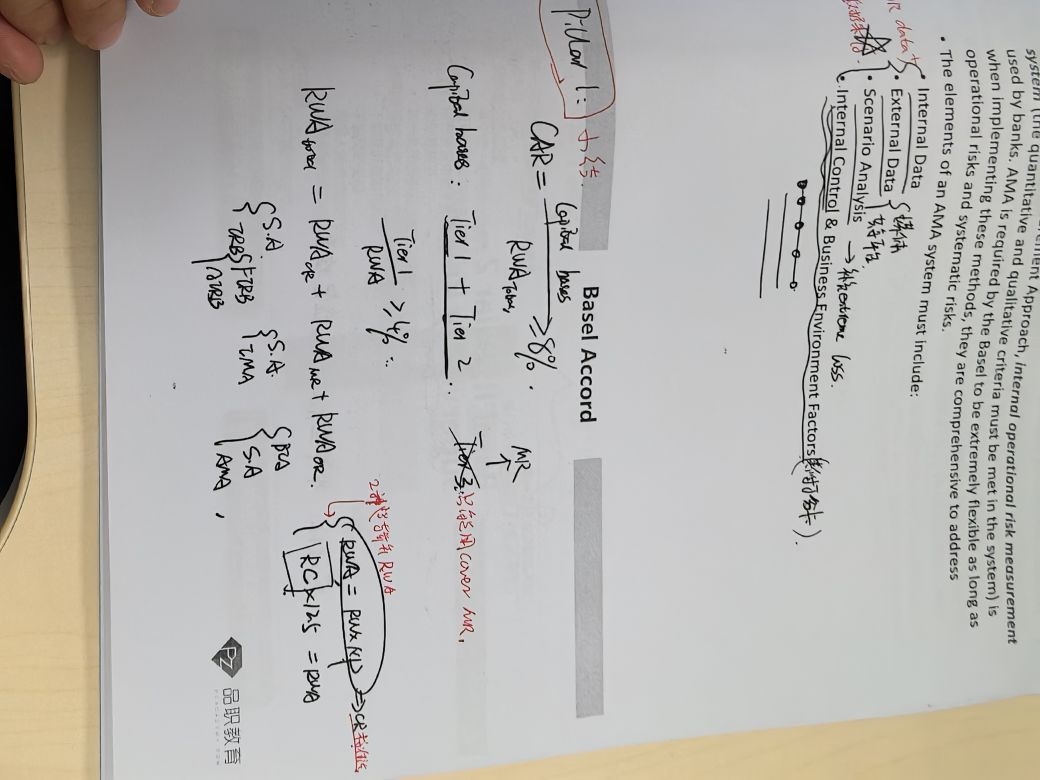 system (the quantitative and qualitative criteria must be met in the system) is
Approach, internal operational risk measurement
used by banks. AMA is required by the Basel to be extremely flexible as long as
when implementing these methods, they are comprehensive to address
operational risks and systematic risks.
• The elements of an AMA system must include:
data
• Internal Data
• External Data
• Scenario Analysis → extreme loss.
• Internal Control & Business Environment Factors
Basel Accord
Pillar 1: 小结.
CAR = Capital bases / RWA ≥ 8%.
MR
Capital bases: Tier 1 + Tier 2. Tier 3 只能用 cover MR,
Tier 1 / RWA ≥ 4%
RWA total = RWA CR + RWA MR + RWA OR.
{ S.A. IRB { FIRB AIRB
{ S.A. IMA
{ BIA S.A AMA
RWA
RC × 12.5 = RWA
PZ 品职教育